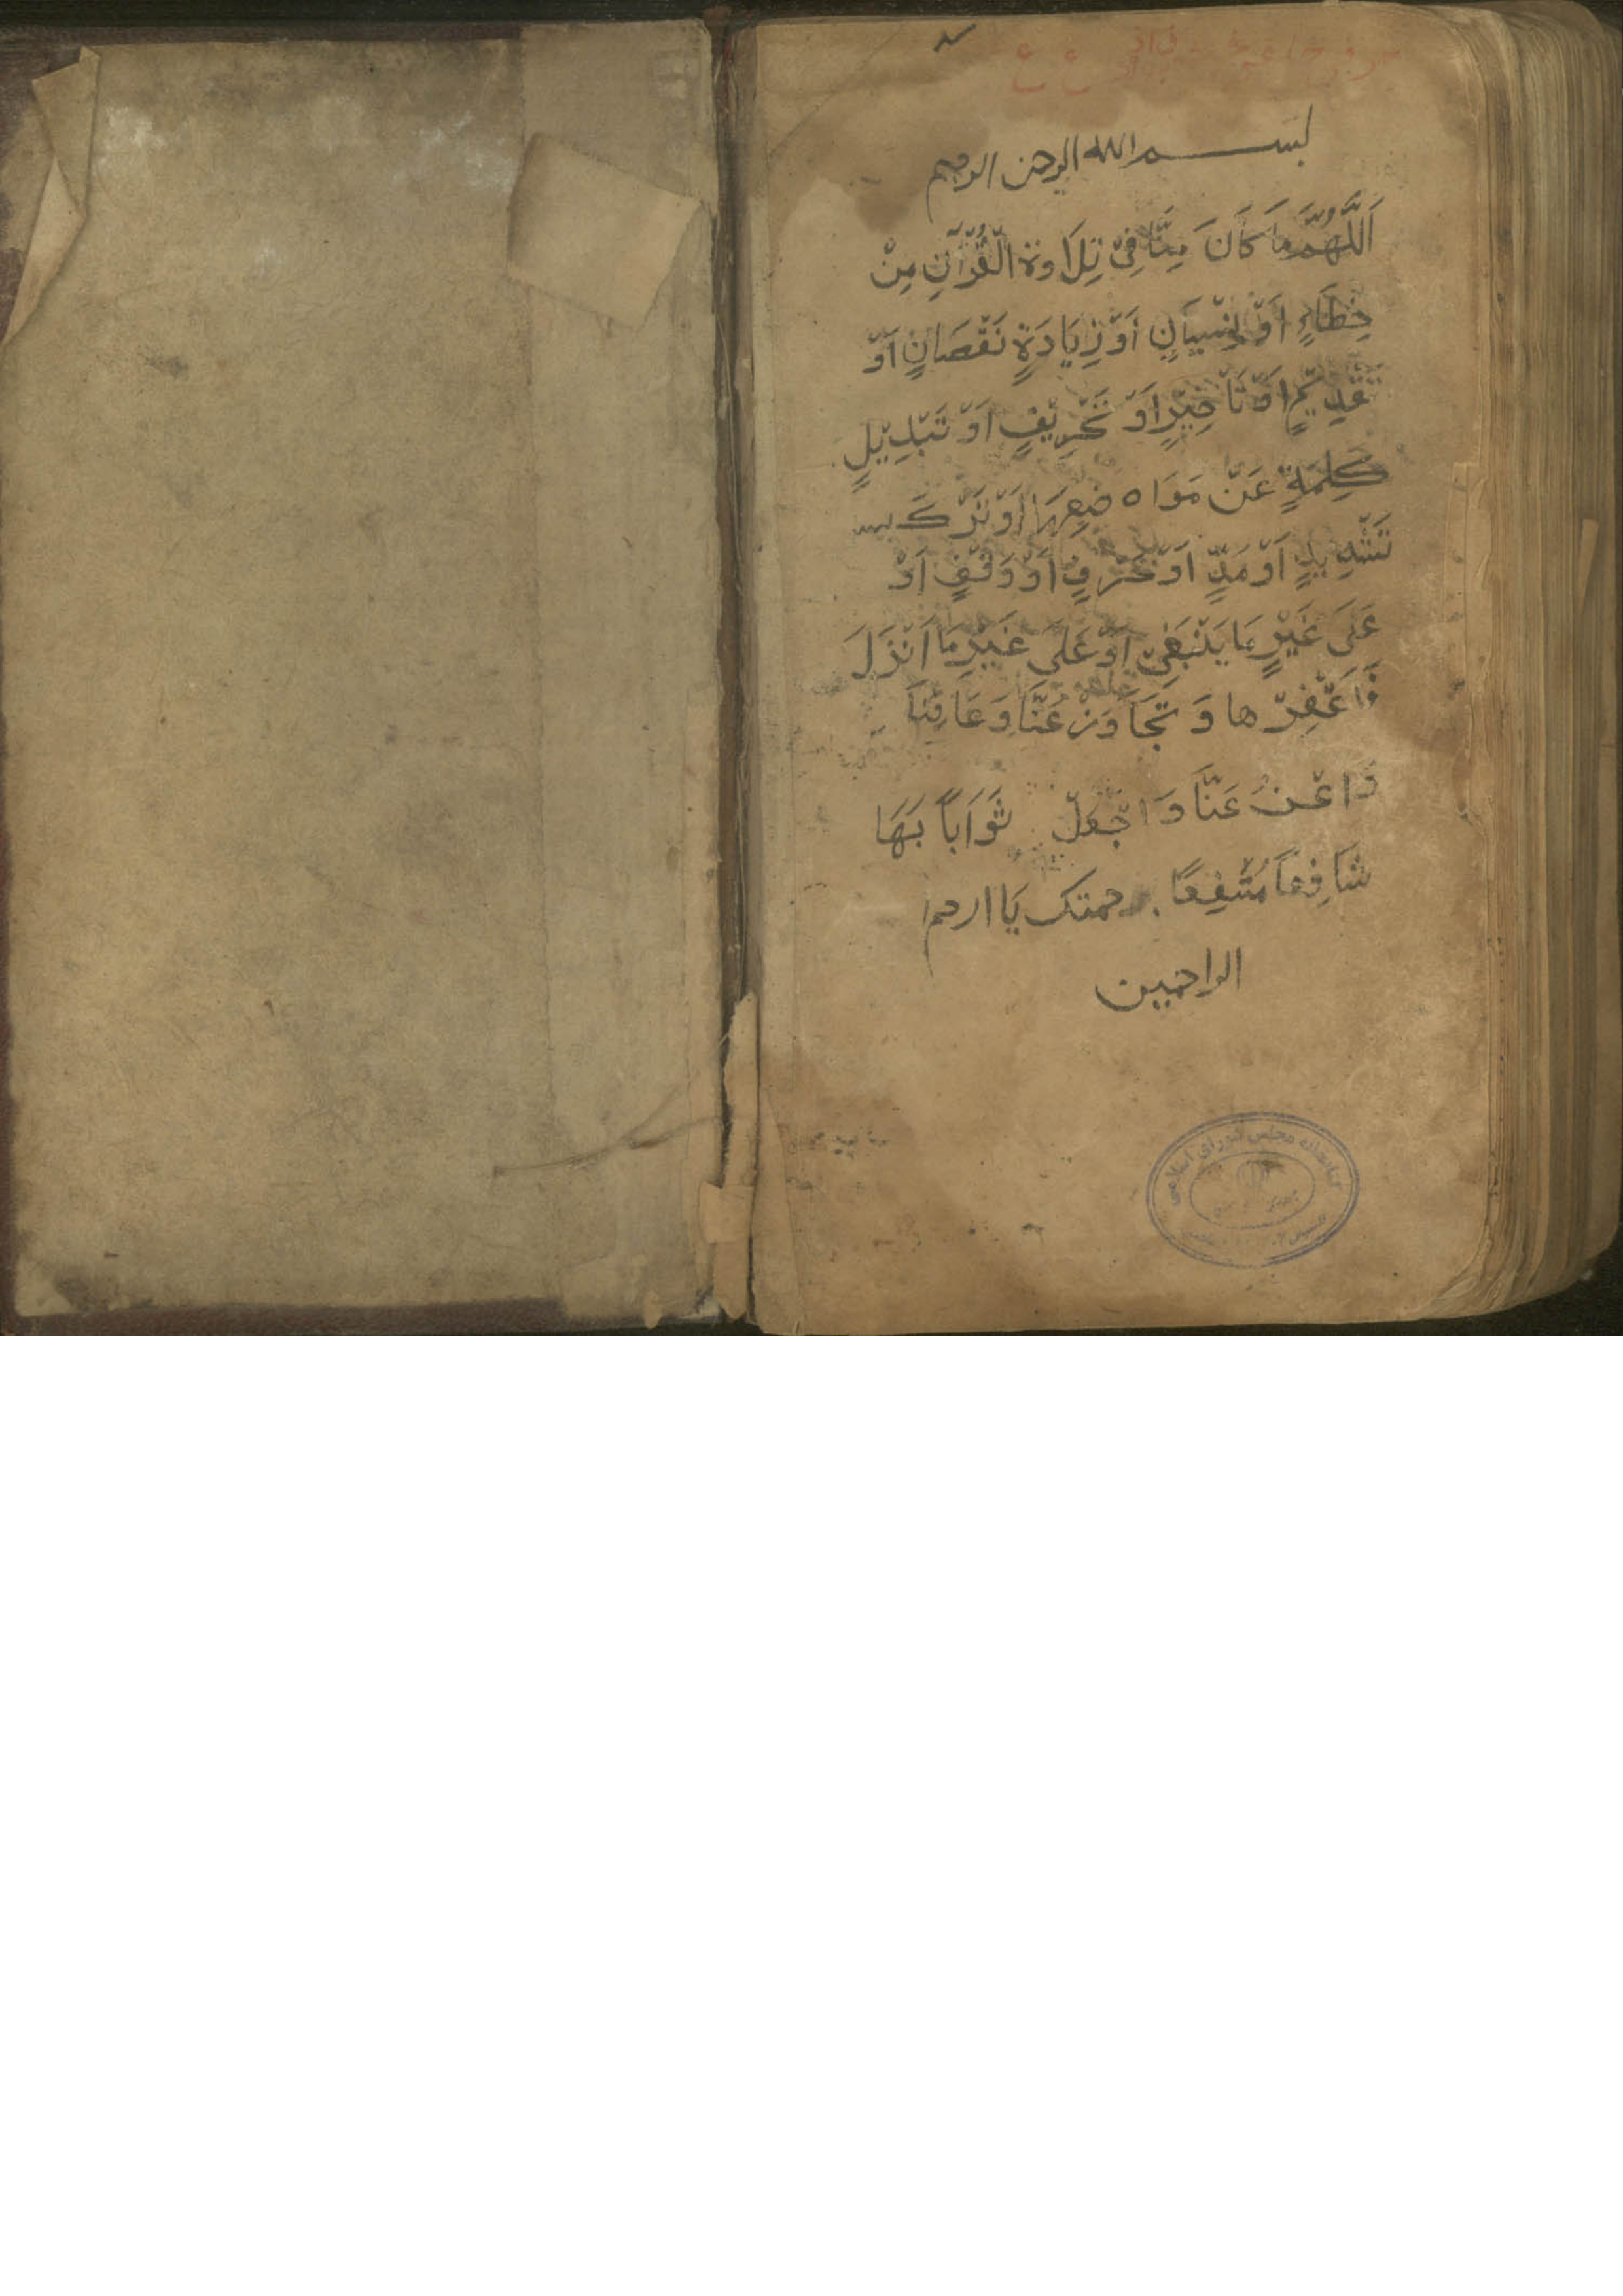 بسم الله الرحمن الرحيم
اَللَّهُمَّ مَا كَانَ مِنَّا فِيْ تِلَاوَةِ الْقُرْآنِ مِنْ
خِطَاءٍ اَوْ نِسْيَانٍ اَوْ زِيَادَةٍ نَقْصَانٍ اَوْ
تَقْدِيْمٍ اَوْ تَأخِيْرٍ اَوْ تَحْرِيْفٍ اَوْ تَبْدِيْلٍ
كَلِمَةٍ عَنْ مَوَا ه ضِعِهَا اَوْ تَرْكَ
تَشْدِيْدٍ اَوْ مَدٍّ اَوْ حَرْفٍ اَوْ وَقْفٍ اَوْ
عَلَى غَيْرِ مَا يَنْبَغِيْ اَوْ عَلَى غَيْرِ مَا اَنْزَلَ
فَاغْفِرْ ها وَ تَجَاوَزْ عَنَّا وَ عَافِنَا
عَنَّا وَ اجْعَلْ ثَوَاباً بَهَا
شَافِعاً مُشَفِعًا برحمتک يَا ارحم
الراحمين
كتابخانه مجلس شورای اسلامی